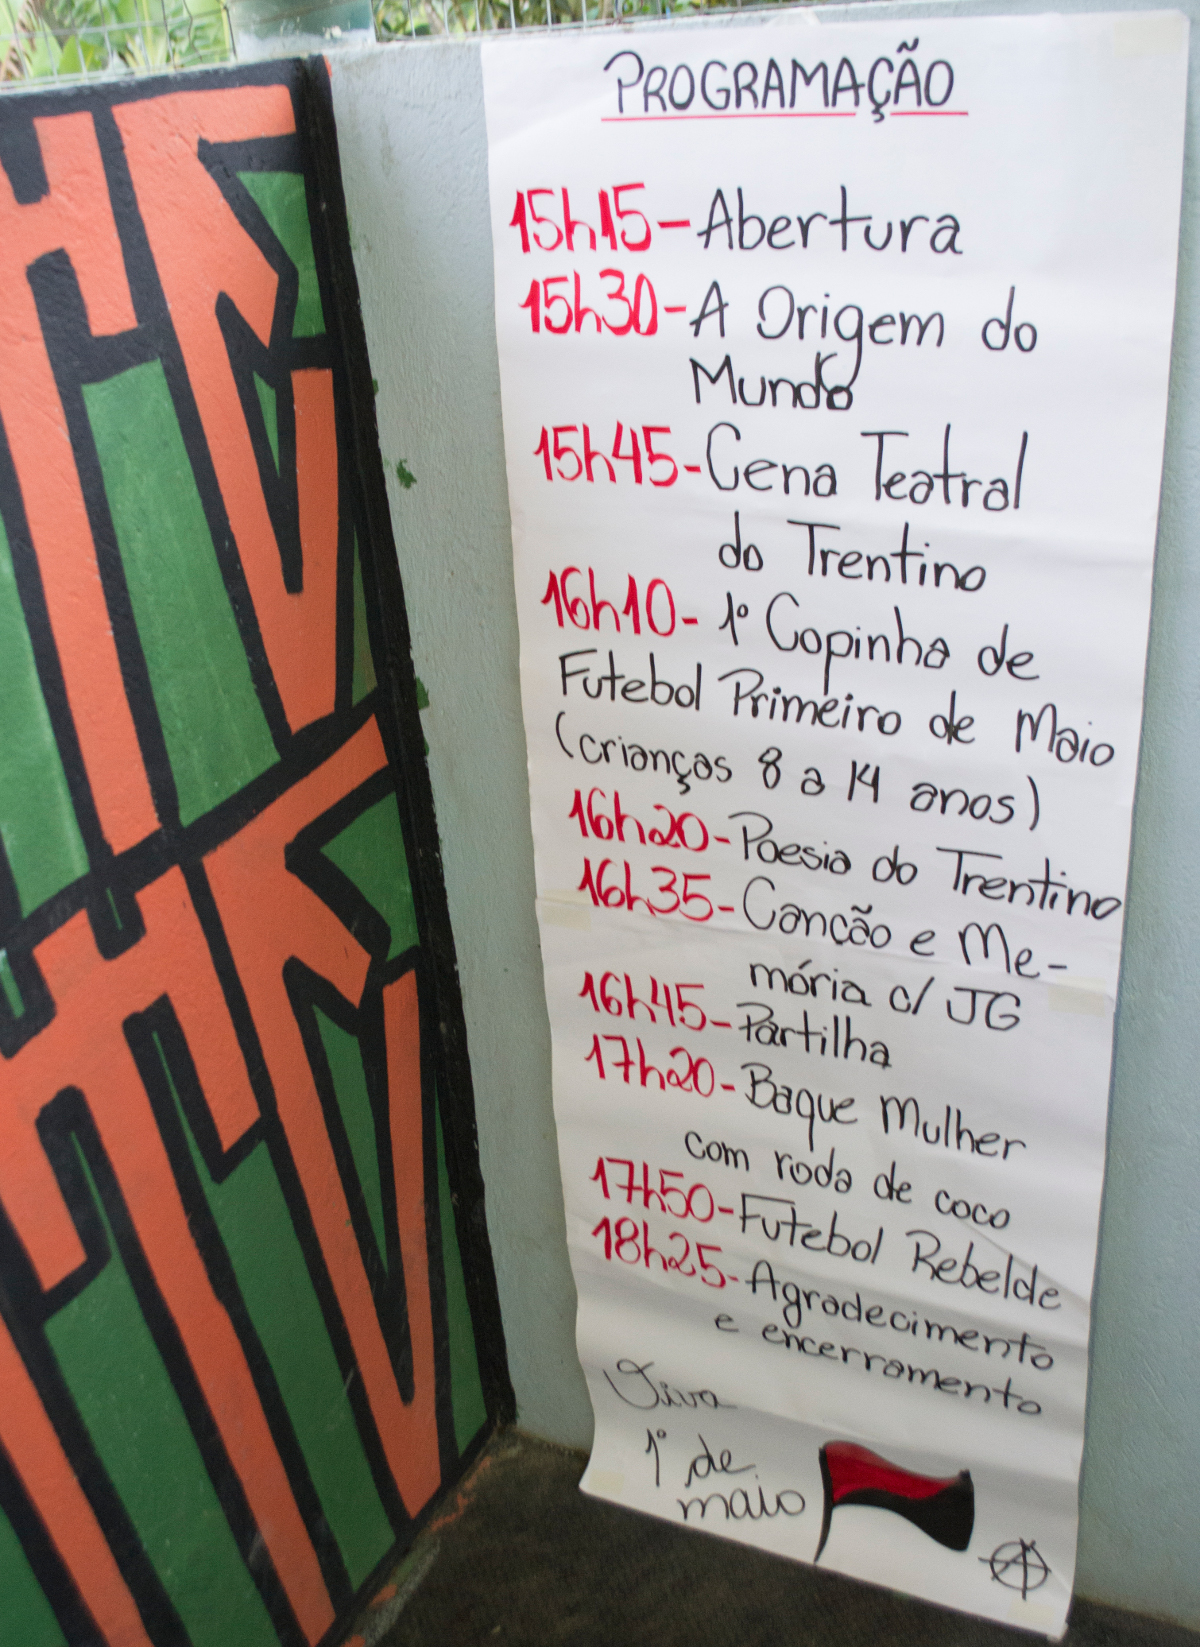 PROGRAMAÇÃO
15h15-Abertura
15h30-A Origem do
Mundo
15h45-Cena Teatral
do Trentino
16h10-1º Copinha de
Futebol Primeiro de Maio
(crianças 8 a 14 anos)
16h20-Poesia do Trentino
16h35-Canção e Me-
mória c/ JG
16h45-Partilha
17h20-Baque Mulher
com roda de coco
17h50-Futebol Rebelde
18h25-Agradecimento
e encerramento
Viva
1º de
maio